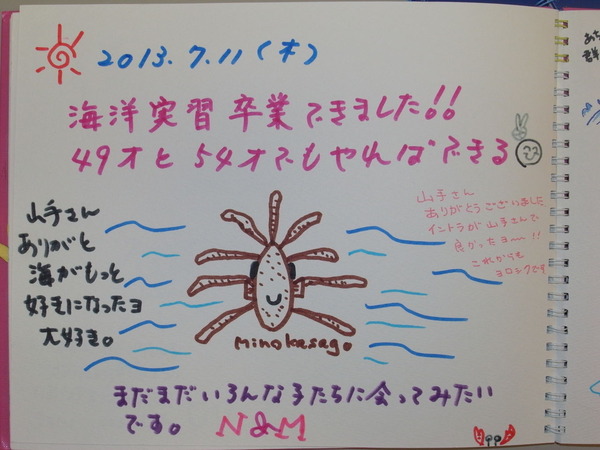 2013.7.11(木)
海洋実習卒業できました!!
49才と54才でもやればできる
山手さん
ありがと
海がもっと
好きになったヨ
大好き。
山手さん
ありがとうございました
イントラが山手さんで
良かったョ〜!!
これからも
ヨロシクです
minokasago
まだまだいろんな子たちに会ってみたい
です。 N&M